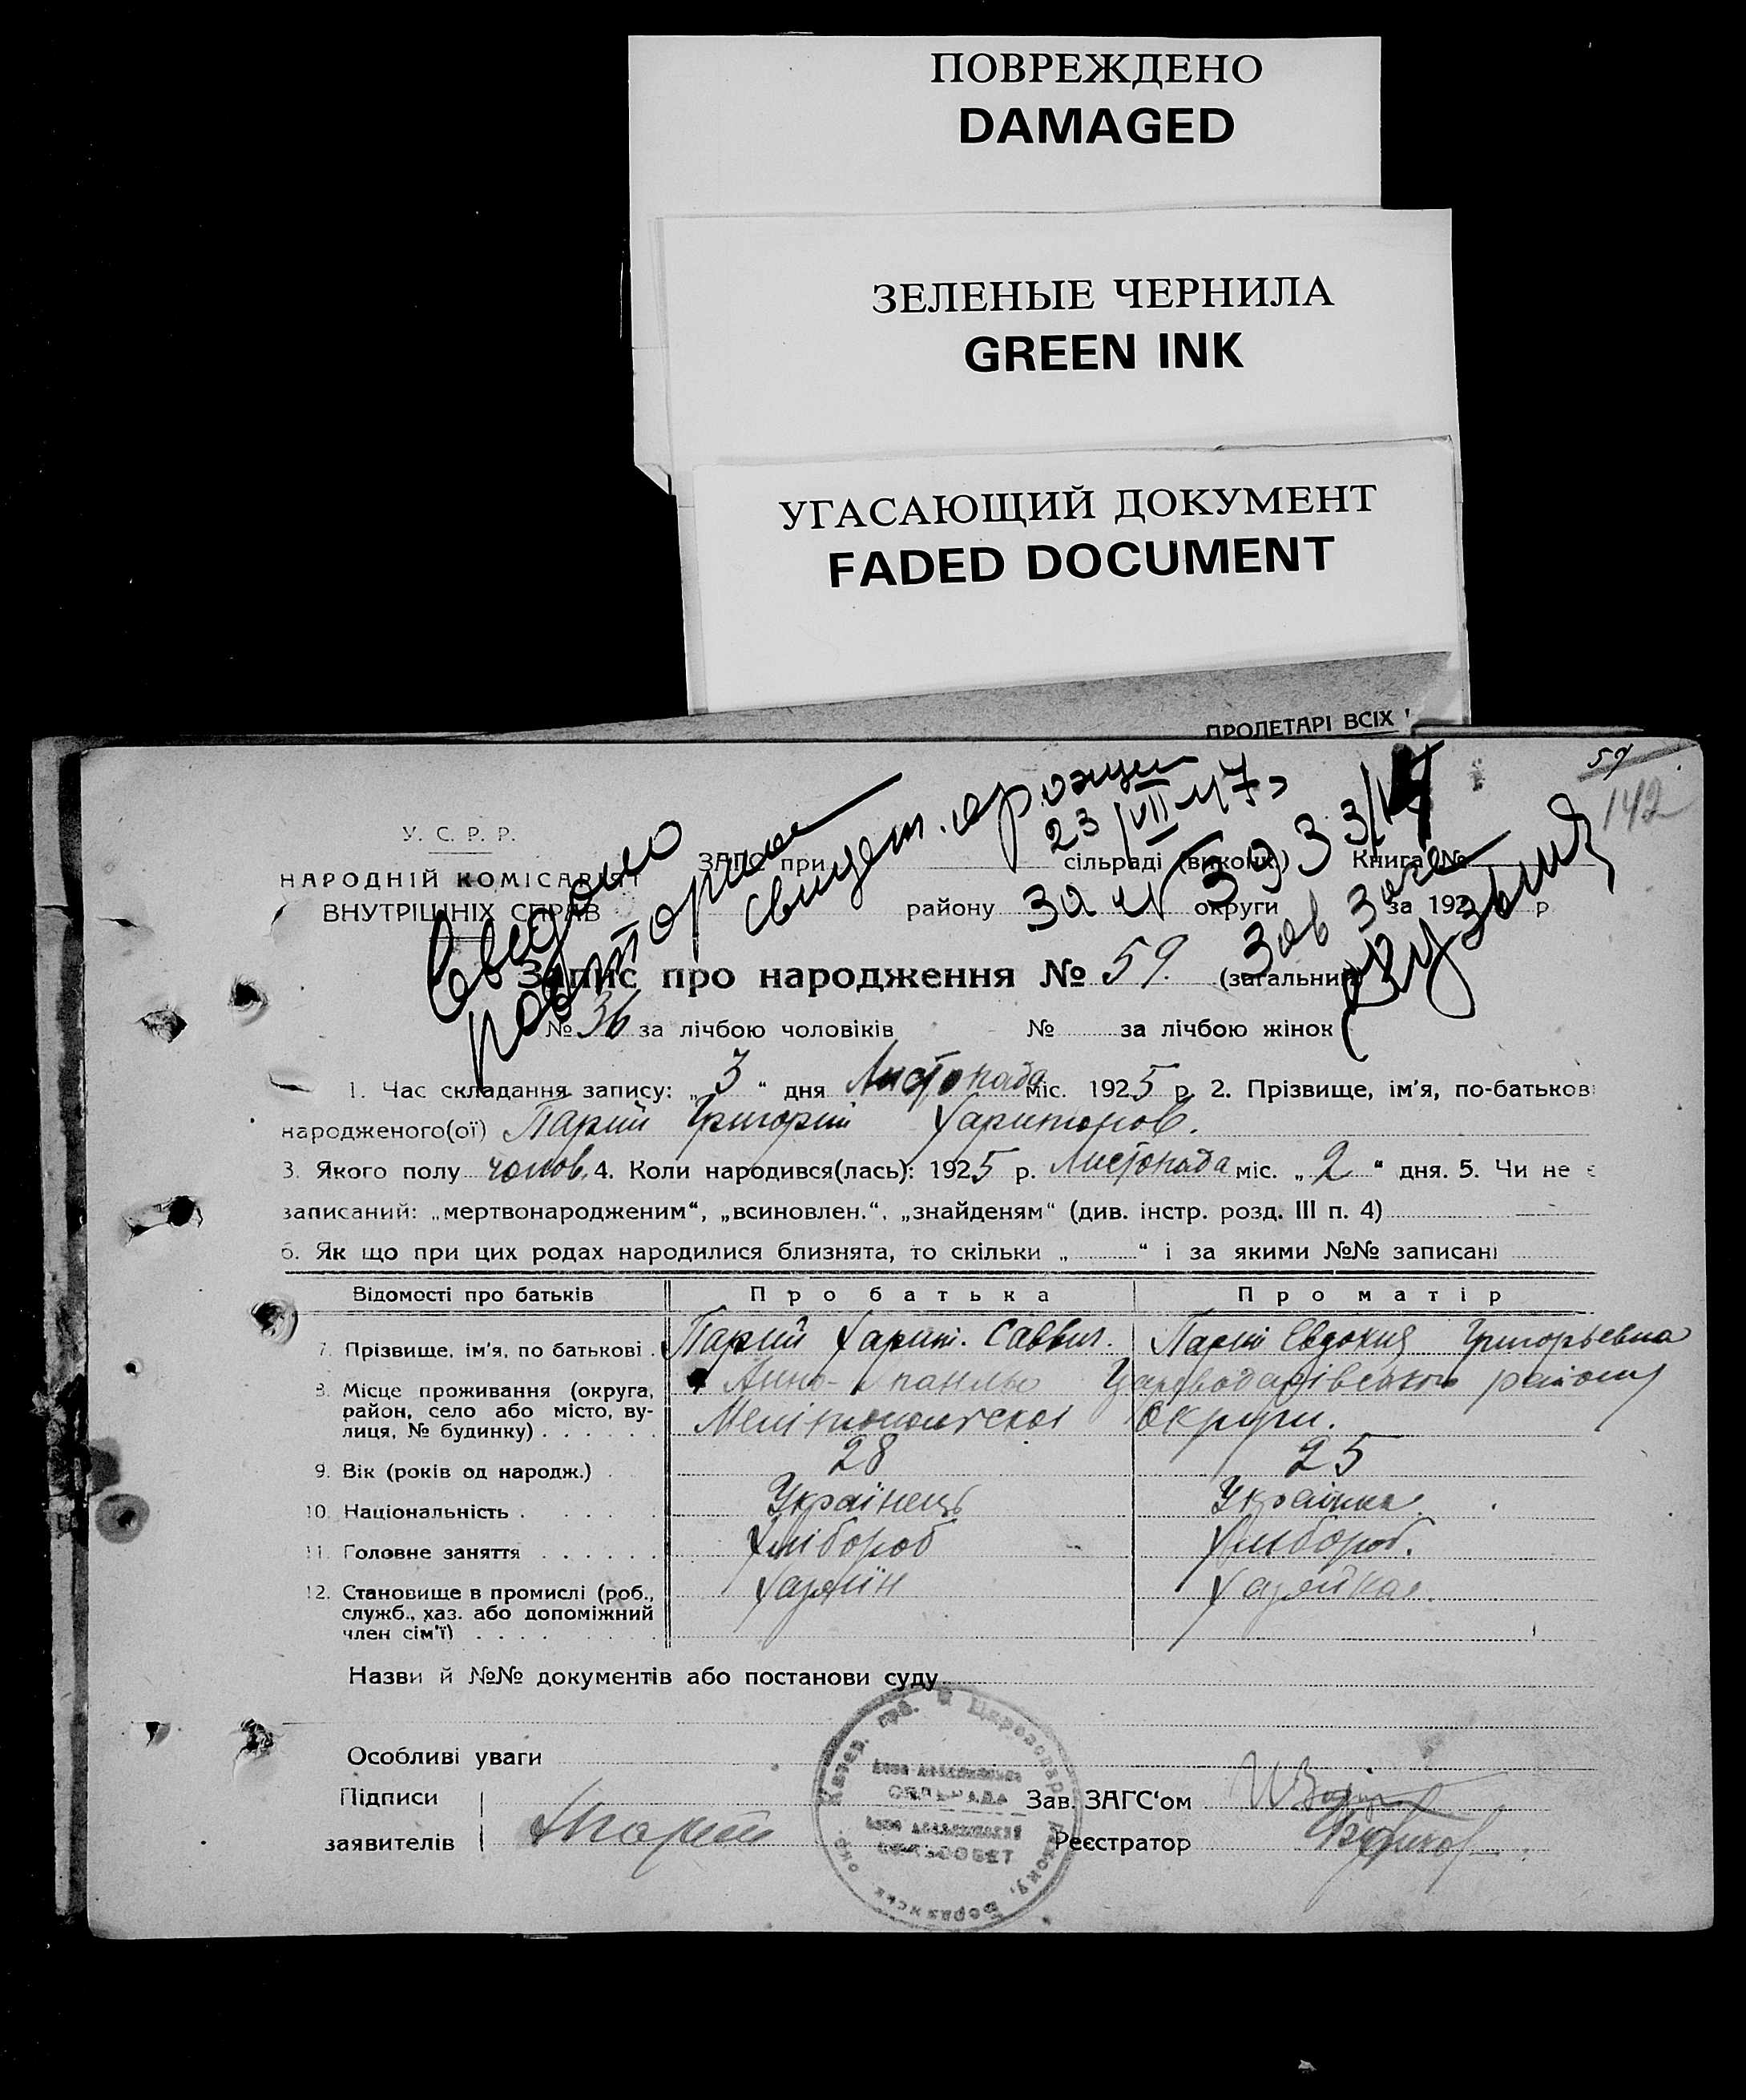 ПОВРЕЖДЕНО
DAMAGED
ЗЕЛЕНЫЕ ЧЕРНИЛА
GREEN INK
УГАСАЮЩИЙ ДОКУМЕНТ
FADED DOCUMENT
ПРОЛЕТАРІ ВСІХ
59
142
У. С. Р. Р.
НАРОДНІЙ КОМІСАРІЯТ
ВНУТРІШНІХ СПРАВ
повторное
свидет.
23/VII 47
ЗАГС при сільраді (виконк.) Книга №
району округи за 192 р
за №
Зав Загс
Запис про народження № 59. (загальний)
№ 36 за лічбою чоловіків № за лічбою жінок
1. Час складання запису: „3“ дня Листопада міс. 1925 р. 2. Прізвище, ім'я, по-батькові
народженого(ої) Парий Григорий Харитонов.
3. Якого полу чолов. 4. Коли народився(лась): 1925 р. Листопада міс. „2“ дня. 5. Чи не є
записаний: „мертвонародженим“, „всиновлен.“, „знайденям“ (див. інстр. розд. III п. 4)
6. Як що при цих родах народилися близнята, то скільки „ “ і за якими №№ записані
Відомості про батьків Про батька Про матір
7. Прізвище, ім'я, по батькові . Парий Харит. Саввич. Парий Евдокия Григорьевна
8. Місце проживання (округа, район, село або місто, вулиця, № будинку) . . . . . .
району
округи.
9. Вік (років од народж.) . 28 25
10. Національність . . . . . Українець Українка
11. Головне заняття . . . . . . Хлібороб Хлібороб.
12. Становище в промислі (роб., служб., хаз. або допоміжний член сім'ї) . . . . Хазяїн Хазяйка
Назви й №№ документів або постанови суду
Особливі уваги
Підписи
заявителів
Парий
Зав. ЗАГС'ом
Реєстратор